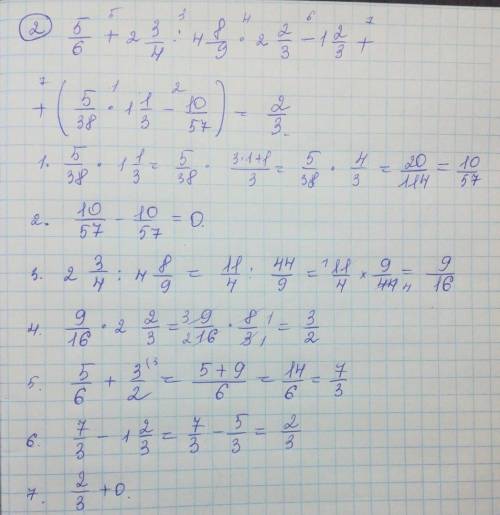 ② 5/6 + 2 3/4 : 4 8/9 · 2 2/3 - 1 2/3 +
+ (5/38 · 1 1/3 - 10/57) = 2/3.
1. 5/38 · 1 1/3 = 5/38 · (3·1+1)/3 = 5/38 · 4/3 = 20/114 = 10/57
2. 10/57 - 10/57 = 0.
3. 2 3/4 : 4 8/9 = 11/4 : 44/9 = 11/4 × 9/44 = 9/16
4. 9/16 · 2 2/3 = 9/16 · 8/3 = 3/2
5. 5/6 + 3/2 = (5+9)/6 = 14/6 = 7/3
6. 7/3 - 1 2/3 = 7/3 - 5/3 = 2/3
7. 2/3 + 0.